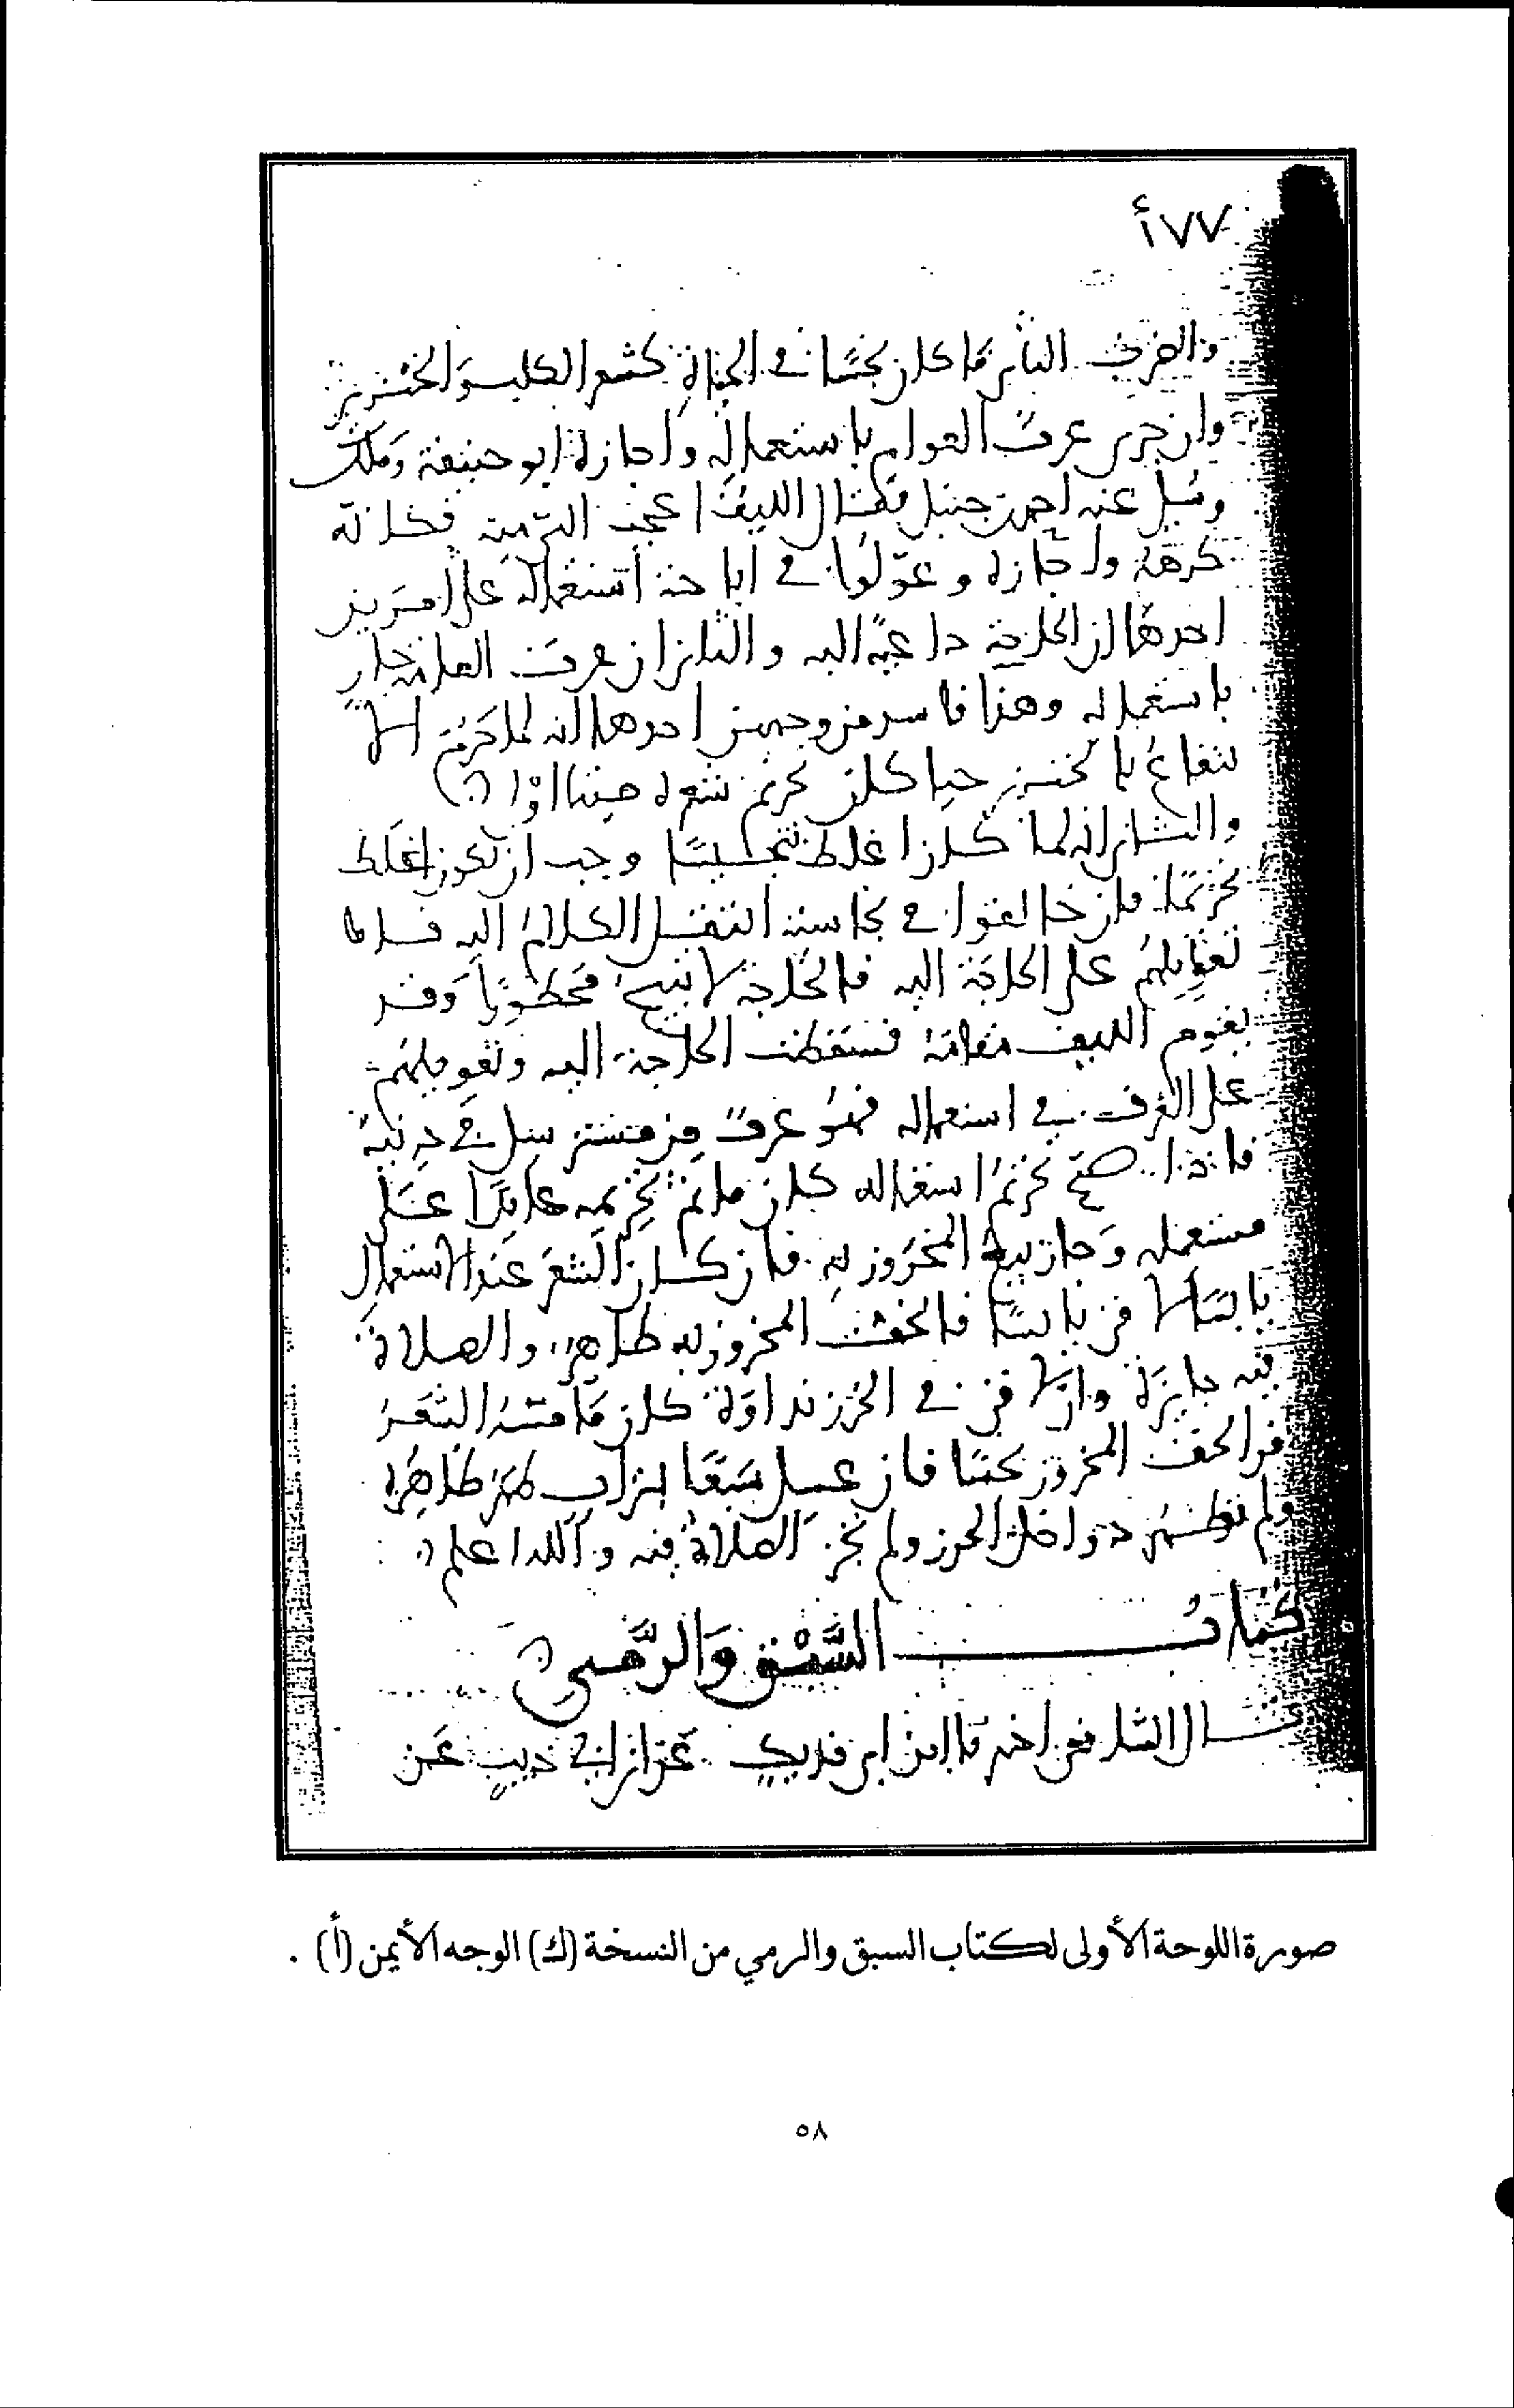 ٧٧أ
والضرب الثاني ما كان نجسًا في الحياة كشعر الكلب والخنزير
وان جرى عرف العوام باستعماله واجازه ابو حنيفة ومالك
وسئل عنه احمد بن حنبل فقال الليف اعجب الي منه فكانه
كرهه واجازه وعوّلوا في اباحة استعماله على امرين
احدهما ان الحاجة داعية اليه والثاني ان عرف العامة جار
باستعماله وهذا فاسد من وجهين احدهما انه لما حرم الا
نتفاع بالخنزير حيا كان تحريم شعره ميتا اولى
والثاني انه لما كان اغلظ تنجيسًا وجب ان يكون اغلظ
تحريمًا فان خالفوا في نجاسته انتقل الكلام اليه فاما
تعويلهم على الحاجة اليه فالحاجة لا تبيح محظورًا وقد
يقوم الليف مقامه فسقطت الحاجة اليه وتعويلهم
على العرف في استعماله فهو عرف من مسترسل في دينه
فاذا صح تحريم استعماله كان ماثم تحريمه عايدًا على
مستعمله وجاز بيع المخروز به فان كان الشعر عند الاستعمال
يابسًا لاقى يابسًا فالخف المخروز به طاهر والصلاة
فيه جايزة وان لاقى في الخرز نداوة كان ما مسه الشعر
من الخف المخروز نجسًا فان غسل سبعًا بتراب طهر ظاهره
ولم تطهر دواخل الخرز ولم تجز الصلاة فيه والله اعلم
كتاب السَّبْق وَالرَّمي
قال الشافعي اخبرنا ابن ابي فديك عن ابن ابي ذيب عن
صورة اللوحة الأولى لكتاب السبق والرمي من النسخة (ك) الوجه الأيمن (أ) .
٥٨